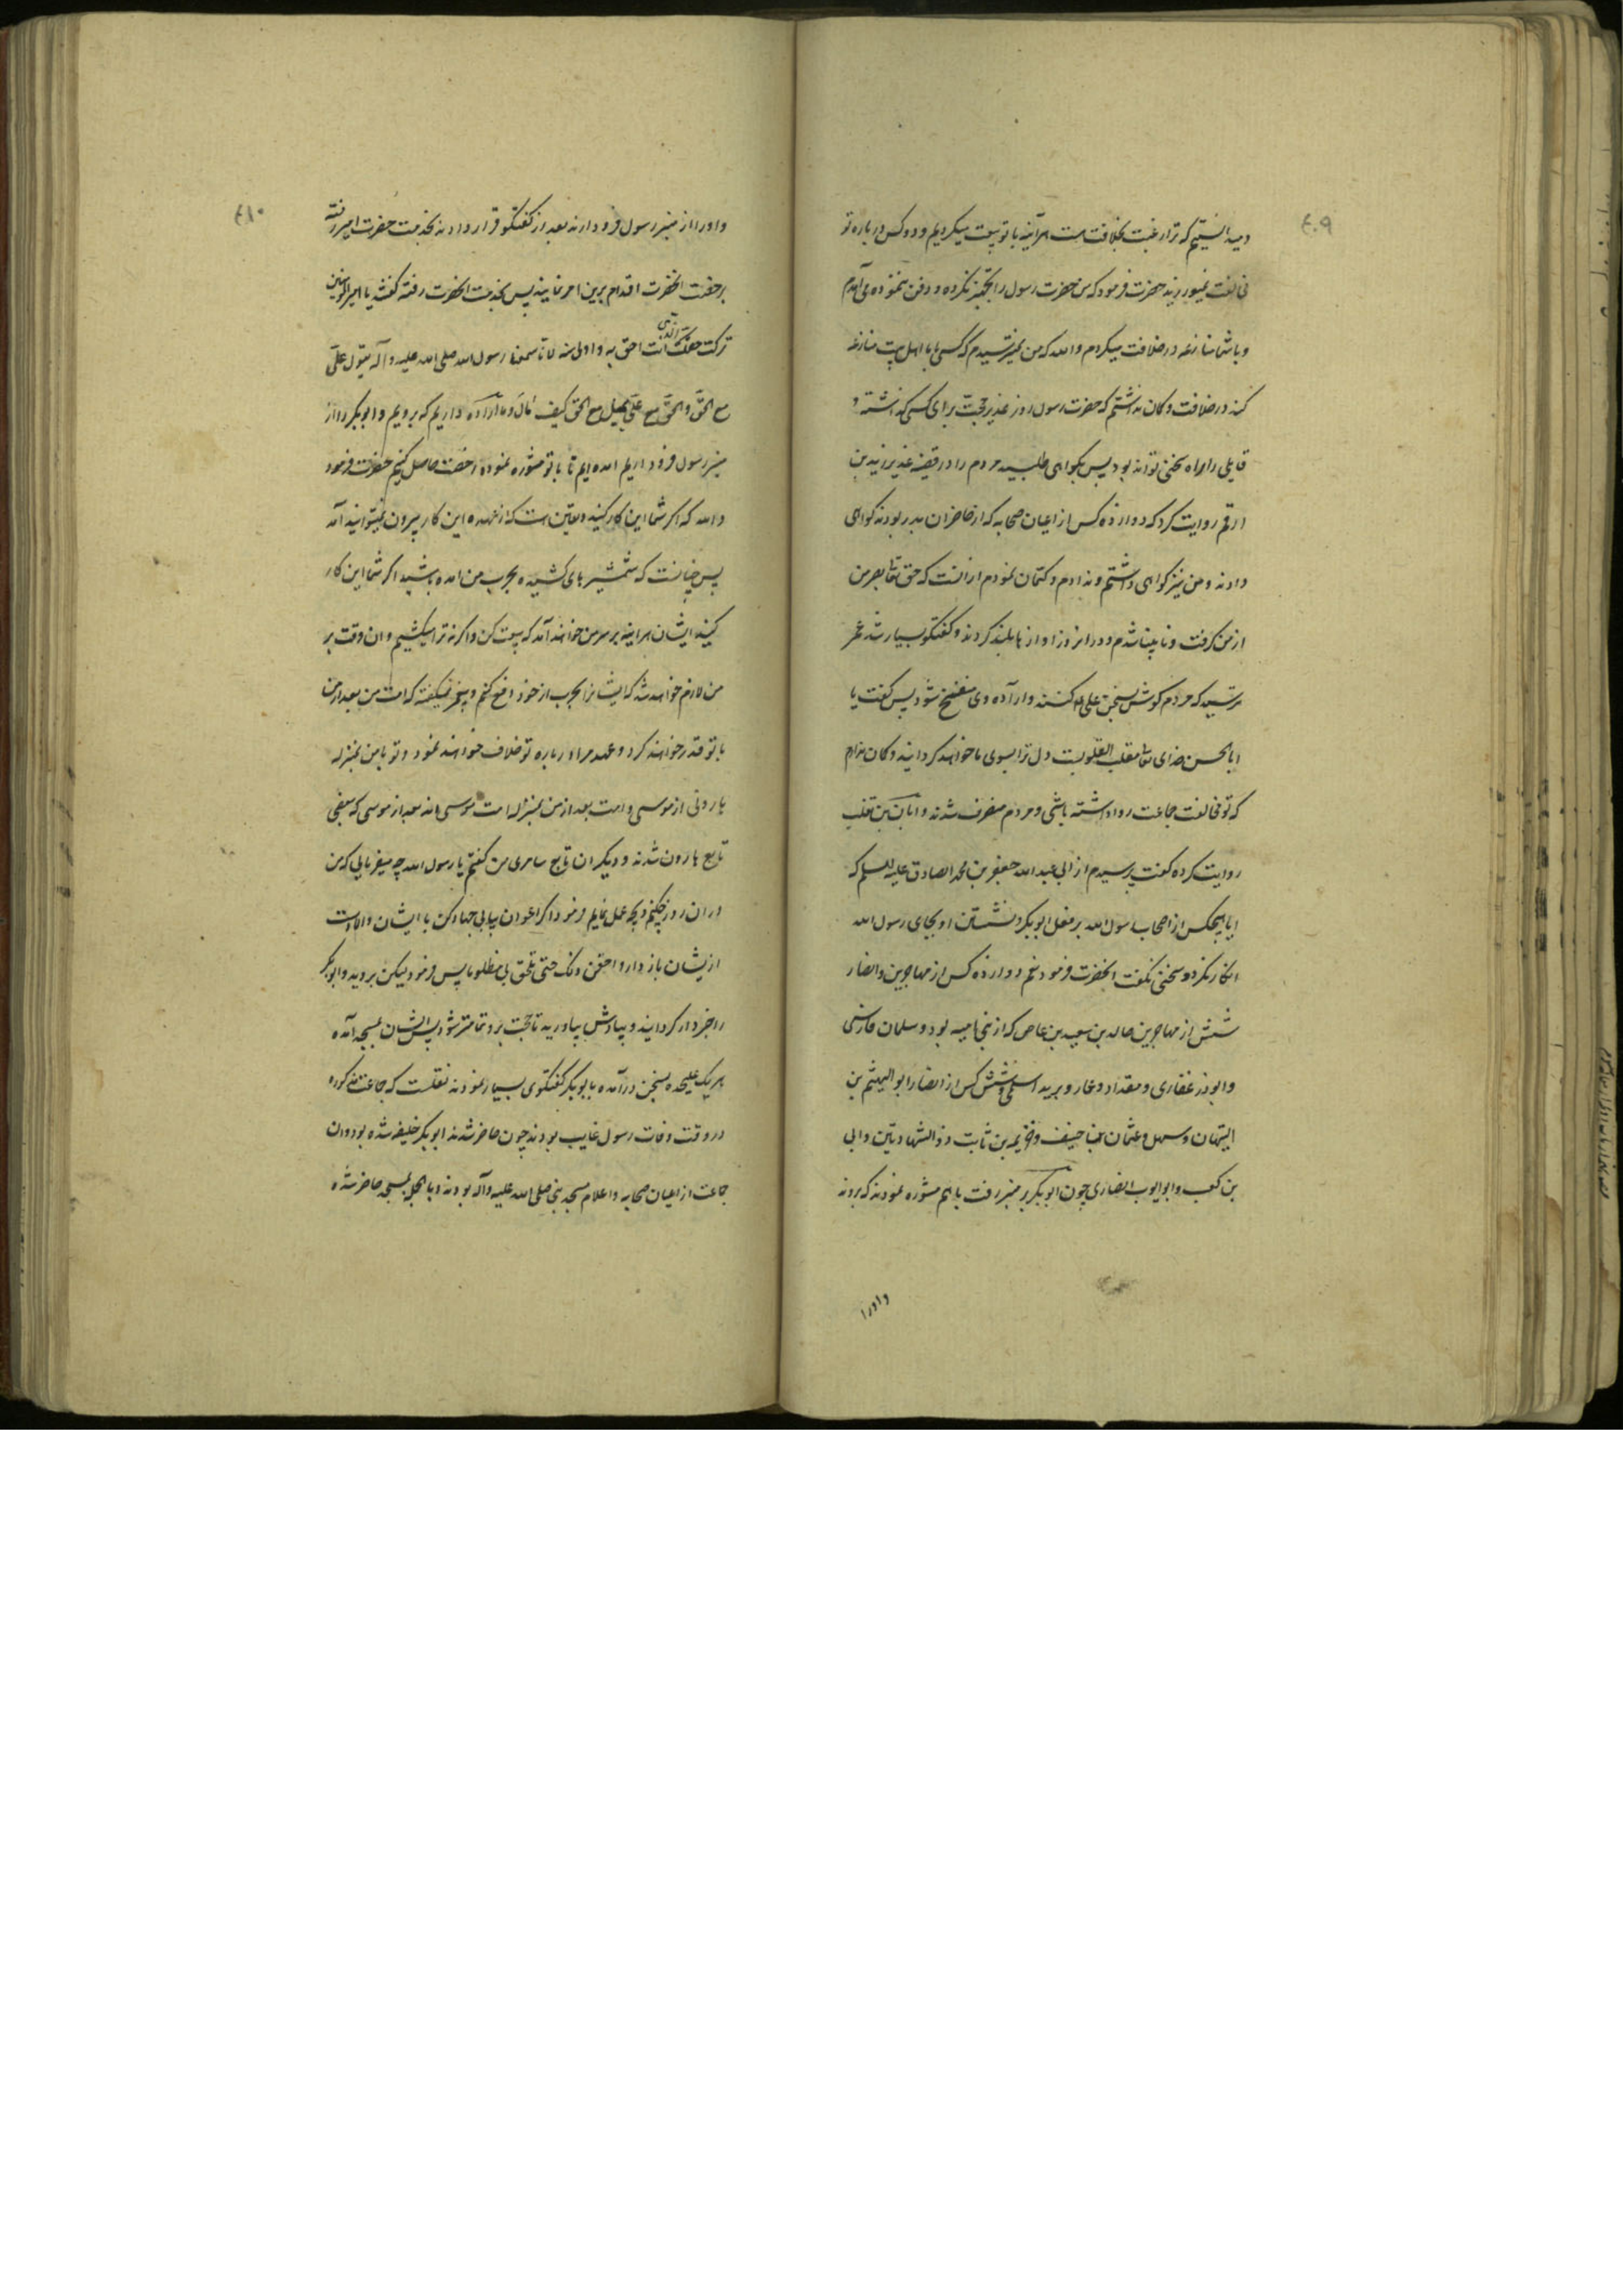 ٤٠٩
میدانستیم که ترا رغبت بخلافت هست هرآینه با تو بیعت میکردیم و دو کس در باره تو
مخالفت نمیورزیدند حضرت فرمود که من حضرت رسول را تجهیز نکرده و دفن ننموده می آمدم
و با شما منازعه در خلافت میکردم والله که من نمیترسیدم که کسی با ما اهل بیت منازعه
کند در خلافت و کمان نداشتم که حضرت رسول روز غدیر حجت برای کسی گذاشته و
قایلی را راه سخنی تواند بود پس بکواهی طلبید مردم را در قضیه غدیر زید بن
ارقم روایت کرد که دوازده کس از اعیان صحابه که از حاضران بدر بودند کواهی
دادند و من نیز کواهی داشتم و ندادم و کتمان نمودم از آنست که حق تعالی بصر من
از من کرفت و نابینا شدم و در انروز اوازها بلند کردند و کفتکو بسیار شد عمر
ترسید که مردم کوش بسخن علی کنند و اراده وی منفسخ شود پس کفت یا
ابا الحسن خدای تعالی مقلب القلوبست دل ترا بسوی ما خواهد کردانید و کمان ندارم
که تو مخالفت جماعت روا داشته باشی و مردم متفرق شدند و ابان بن تغلب
روایت کرده کفت پرسیدم از ابی عبد الله جعفر بن محمد الصادق علیه السلم که
ایا هیچکس از اصحاب رسول الله بر فعل ابوبکر و نشستن او بجای رسول الله
انکار نکرد و سخنی نکفت انحضرت فرمود نعم دوازده کس از مهاجرین و انصار
شش از مهاجرین خالد بن سعید بن عاص که از بنی امیه بود و سلمان فارسی
و ابوذر غفاری و مقداد و عمار و بریده اسلمی و شش کس از انصار ابو الهیثم بن
التیهان و سهل و عثمان بنا حنیف و خزیمه بن ثابت ذو الشهادتین و ابی
بن کعب و ابو ایوب انصاری چون ابوبکر بر منبر رفت با هم مشوره نمودند که بروند
و او را
٤١٠
و او را از منبر رسول فرود ارند بعد از کفتکو قرار دادند بخدمت حضرت امیر رفته
برخصت انحضرت اقدام برین امر نمایند پس بخدمت انحضرت رفته کفتند یا امیر المؤمنین
ترکت حقک انت احق به و اولی منه لانا سمعنا رسول الله صلی الله علیه و آله یقول علی
مع الحق و الحق مع علی یمیل مع الحق کیف مال و ما اراده داریم که برویم و ابوبکر را از
منبر رسول فرود اریم امده ایم تا با تو مشوره نموده رخصت حاصل کنیم حضرت فرمود
والله که اکر شما این کار کنید و یقین است که از عهده این کار بیرون نمیتوانید آمد
پس چنانست که شمشیرهای کشیده بحرب من امده باشید اکر شما این کار
کنید ایشان هراینه بر سر من خواهند آمد که بیعت کن و اکرنه ترا میکشیم و ان وقت بر
من لازم خواهد شد که ایشانرا بحرب از خود دفع کنم و پیغمبر میکفته که امت من بعد از من
با تو غدر خواهند کرد و عهد مرا در باره تو خلاف خواهند نمود و تو با من بمنزله
هارونی از موسی و امت بعد از من بمنزله امت موسی اند بعد از موسی که بعضی
تابع هارون شدند و دیکران تابع سامری من کفتم یا رسول الله چه میفرمایی که من
در ان روز چکنم و بچه عمل نمایم فرمود اکر اعوان بیابی جهاد کن با ایشان والا دست
ازیشان باز دار و احقن دمک حتی تلحق بی مظلوما پس فرمود لیکن بروید و ابوبکر
را خبردار کردانید و بیادش بیاورید تا حجت برو تمامتر شود پس ایشان بمسجد آمده
هر یک علیحده بسخن درآمده با ابوبکر کفتکوی بسیار نمودند نقلست که جماعت مذکوره
در وقت وفات رسول غایب بودند چون حاضر شدند ابوبکر خلیفه شده بود و ان
جماعت از اعیان صحابه و اعلام مسجد نبی صلی الله علیه و آله بودند و بالجمله بمسجد حاضر شده